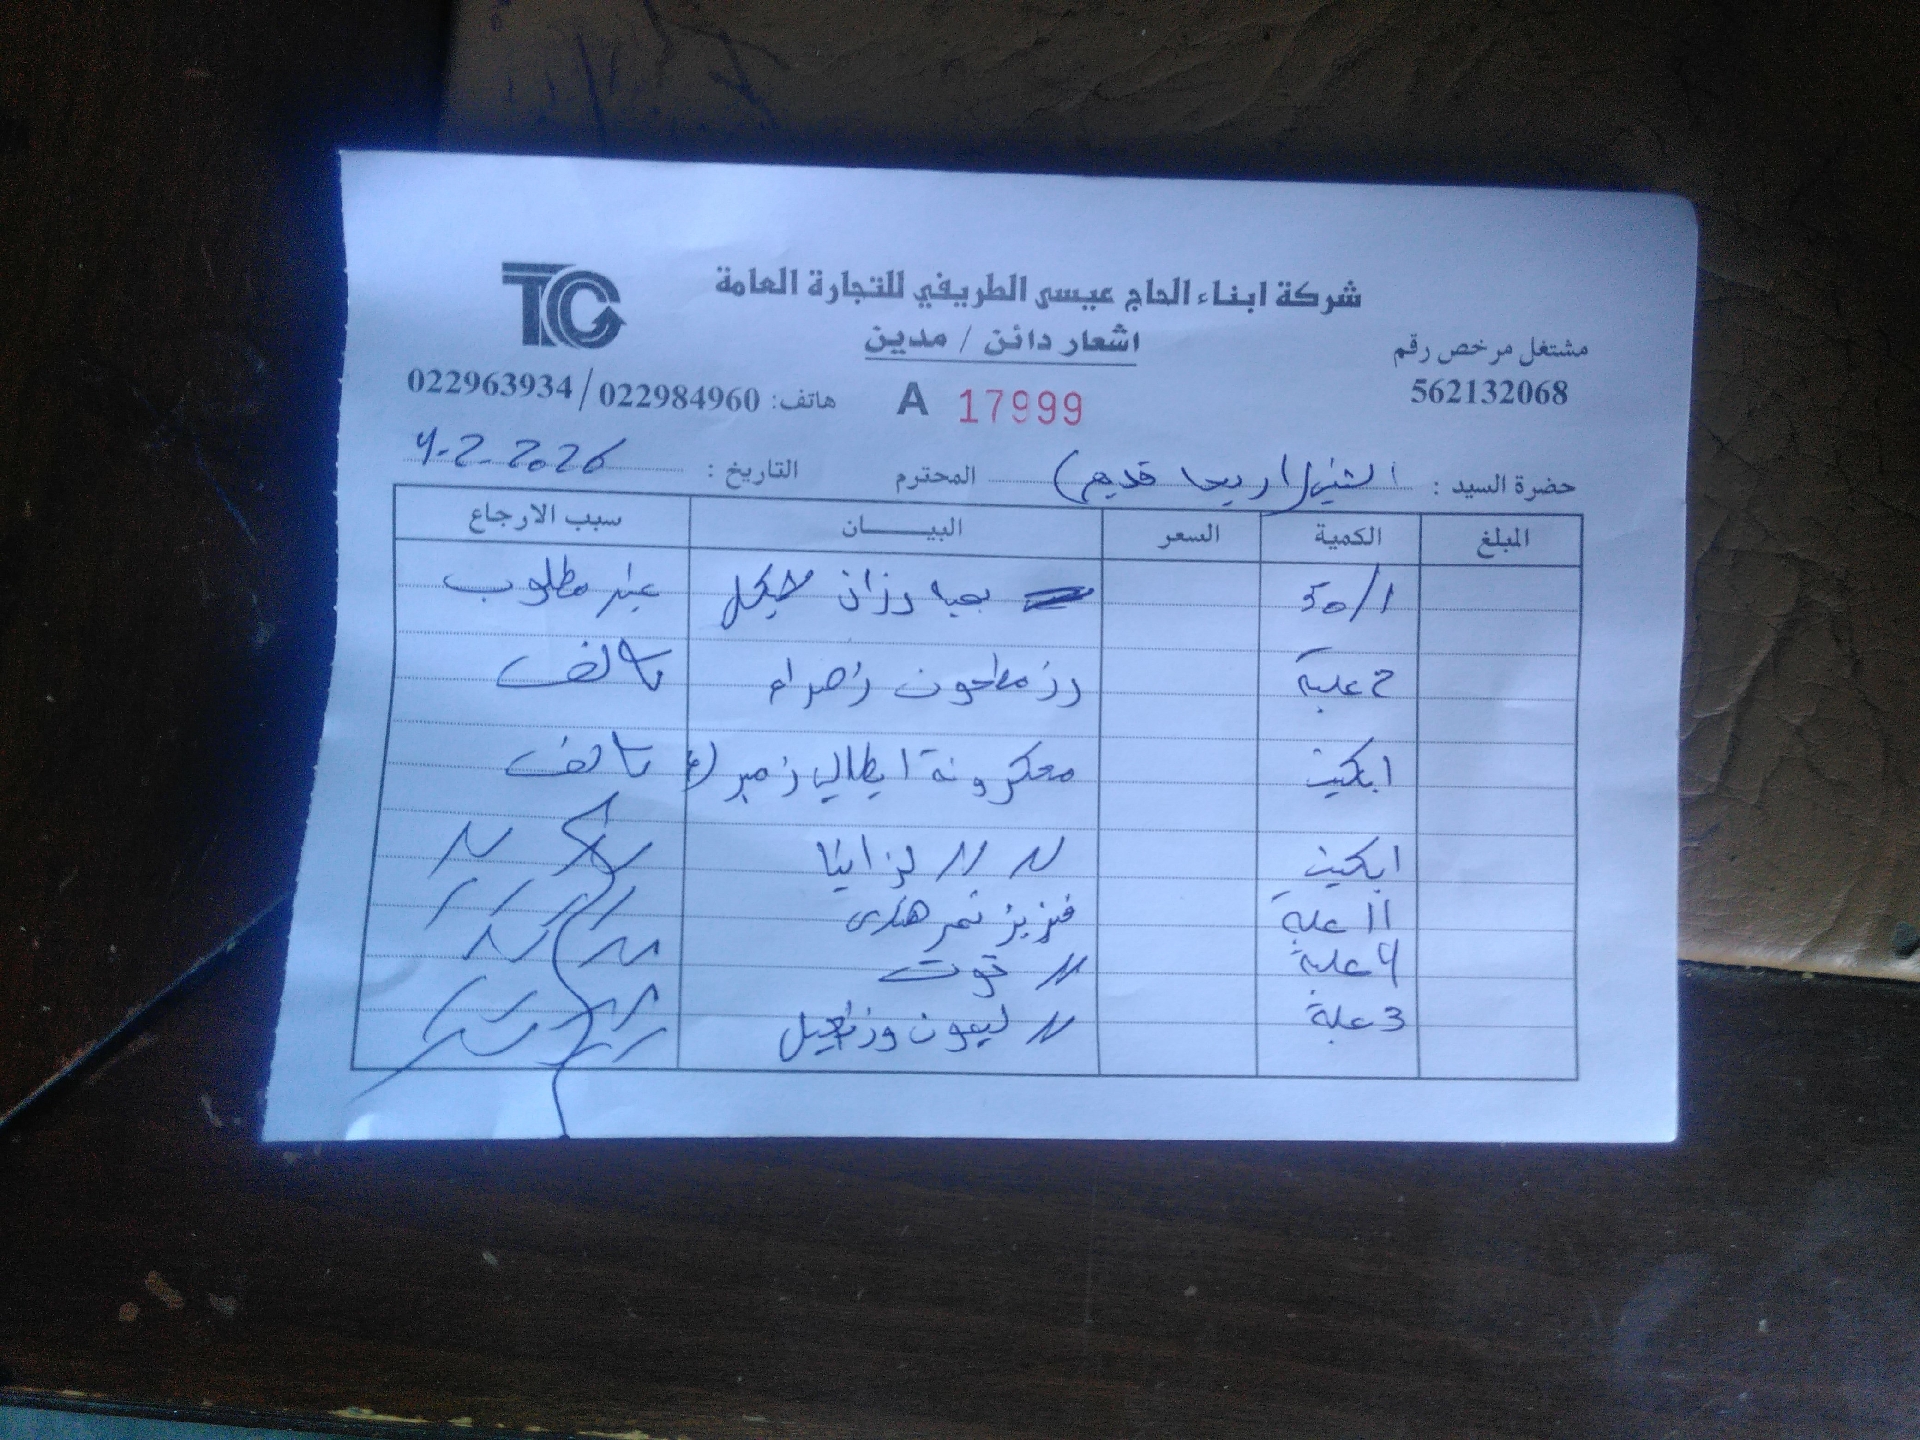 TC
شركة ابناء الحاج عيسى الطريفي للتجارة العامة
اشعار دائن / مدين
مشتغل مرخص رقم
562132068
هاتف: 022984960 / 022963934
A 17999
حضرة السيد : (اريحا قديم) المحترم
التاريخ : 4-2-2026
المبلغ الكمية السعر البيـــــان سبب الارجاع
50/1 غير مطلوب
2 علبة رز مطحون زهراء تالف
1 بكيت معكرونة ايطالي تالف
1 بكيت 〃 〃 لزانيا 〃 〃
11 علبة فيزيز تمر هندي 〃 〃
4 علبة 〃 توت 〃 〃
3 علبة 〃 ليمون وزنجبيل 〃 〃